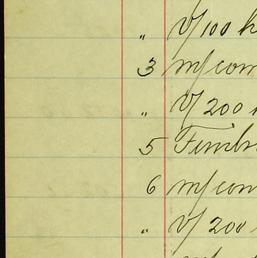 " v/100 k
3 m/com
" v/200
5 Timbr
6 m/com
" v/200